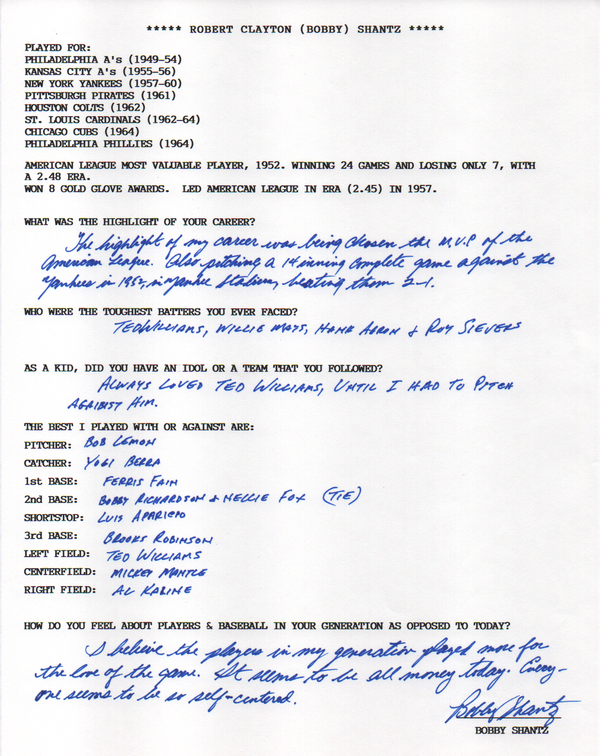 ***** ROBERT CLAYTON (BOBBY) SHANTZ *****
PLAYED FOR:
PHILADELPHIA A's (1949-54)
KANSAS CITY A's (1955-56)
NEW YORK YANKEES (1957-60)
PITTSBURGH PIRATES (1961)
HOUSTON COLTS (1962)
ST. LOUIS CARDINALS (1962-64)
CHICAGO CUBS (1964)
PHILADELPHIA PHILLIES (1964)
AMERICAN LEAGUE MOST VALUABLE PLAYER, 1952. WINNING 24 GAMES AND LOSING ONLY 7, WITH
A 2.48 ERA.
WON 8 GOLD GLOVE AWARDS. LED AMERICAN LEAGUE IN ERA (2.45) IN 1957.
WHAT WAS THE HIGHLIGHT OF YOUR CAREER?
The highlight of my career was being chosen the M.V.P of the
American League. Also pitching a 14 inning complete game against the
Yankees in 1952, in Yankee Stadium, beating them 2-1.
WHO WERE THE TOUGHEST BATTERS YOU EVER FACED?
TED WILLIAMS, WILLIE MAYS, HANK AARON & ROY SIEVERS
AS A KID, DID YOU HAVE AN IDOL OR A TEAM THAT YOU FOLLOWED?
ALWAYS LOVED TED WILLIAMS, UNTIL I HAD TO PITCH
AGAINST HIM.
THE BEST I PLAYED WITH OR AGAINST ARE:
PITCHER: BOB LEMON
CATCHER: YOGI BERRA
1st BASE: FERRIS FAIN
2nd BASE: BOBBY RICHARDSON & NELLIE FOX (TIE)
SHORTSTOP: LUIS APARICIO
3rd BASE: BROOKS ROBINSON
LEFT FIELD: TED WILLIAMS
CENTERFIELD: MICKEY MANTLE
RIGHT FIELD: AL KALINE
HOW DO YOU FEEL ABOUT PLAYERS & BASEBALL IN YOUR GENERATION AS OPPOSED TO TODAY?
I believe the players in my generation played more for
the love of the game. It seems to be all money today. Every-
one seems to be so self-centered.
Bobby Shantz
BOBBY SHANTZ